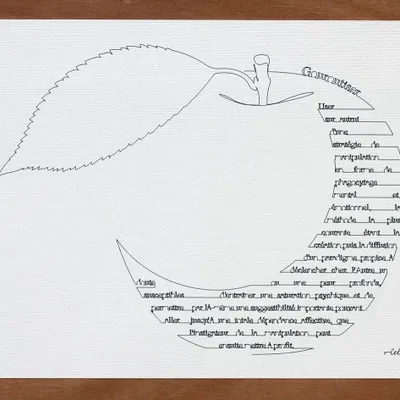 Gourmutiner
User
sur autrui
d'une
stratégie de
manipulation
en forme de
phagocytage
mental et
émotionnel, la
méthode la plus
courante étant la
création puis la diffusion
d'un paradigme propice à
déclencher chez l'Autre un
doute ou une peur profonds,
susceptibles d'entraîner une saturation psychique et de
permettre par là-même une suggestibilité importante pouvant
aller jusqu'à une totale dépendance affective, que
l'instigateur de la manipulation peut
ensuite mettre à profit.